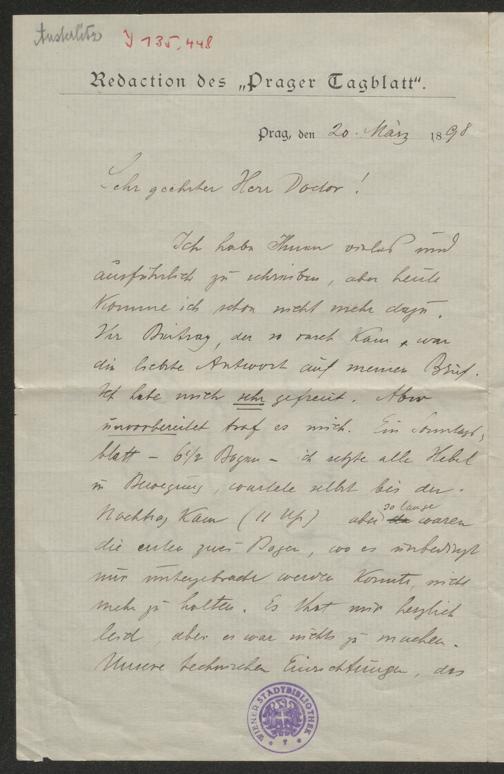 Austerlitz
J 135.448
Redaction des „Prager Tagblatt“.
Prag, den 20. März 1898
Sehr geehrter Herr Doctor!
Ich habe Ihnen vieles und
ausführlich zu schreiben, aber heute
komme ich schon nicht mehr dazu.
Ihr Beitrag, der so rasch kam, war
die liebste Antwort auf meinen Brief.
Ich habe mich sehr gefreut. Aber
unvorbereitet traf es mich. Ein Sonntags,
blatt – 6 1/2 Bogen – ich setzte alle Hebel
in Bewegung, wartete selbst bis der
Nachtrag kam (11 Uhr) aber so lange waren
die ersten zwei Bogen, wo es unbedingt
nur untergebracht werden konnte, nicht
mehr zu halten. Es that mir herzlich
leid, aber es war nichts zu machen.
Unsere technischen Einrichtungen, das
WIENER STADTBIBLIOTHEK